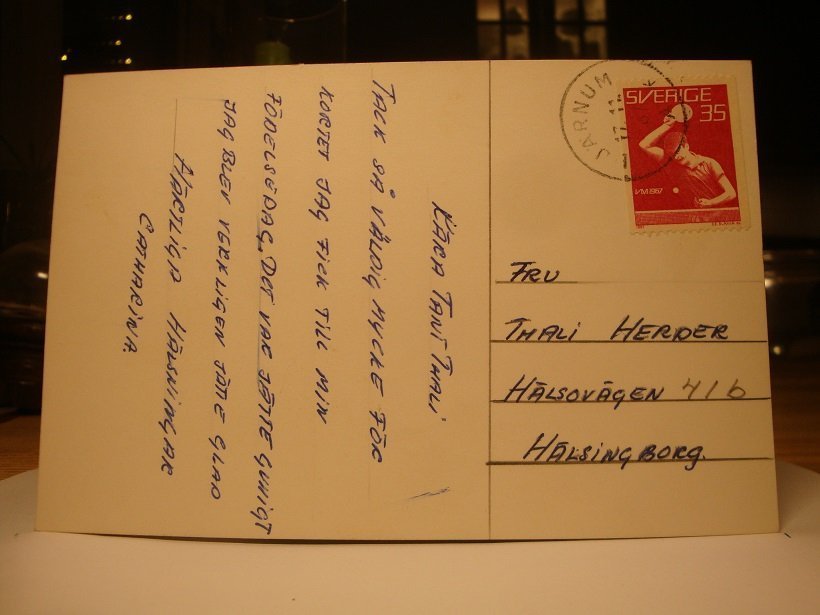 KÄRA TANT THALI
TACK SÅ VÄLDIG MYCKE FÖR
KORTET JAG FICK TILL MIN
FÖDELSEDAG. DET VAR JÄTTE GULLIGT
JAG BLEV VERKLIGEN JÄTTE GLAD
HJÄRTLIGA HÄLSNINGAR
CATHARINA.
JÄRNUM
SVERIGE
35
VM 1967
FRU
THALI HERDER
HÄLSOVÄGEN 41 b
HÄLSINGBORG.